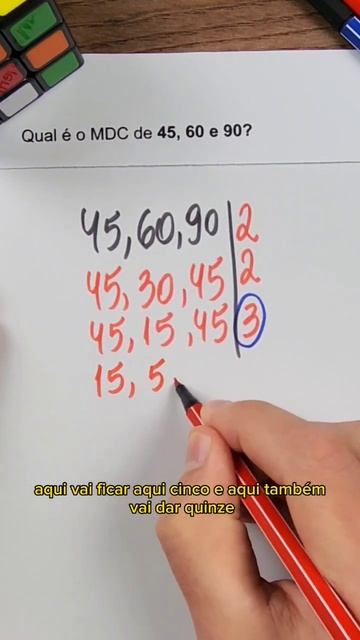 Qual é o MDC de 45, 60 e 90?
45, 60, 90 | 2
45, 30, 45 | 2
45, 15, 45 | 3
15, 5
aqui vai ficar aqui cinco e aqui também
vai dar quinze